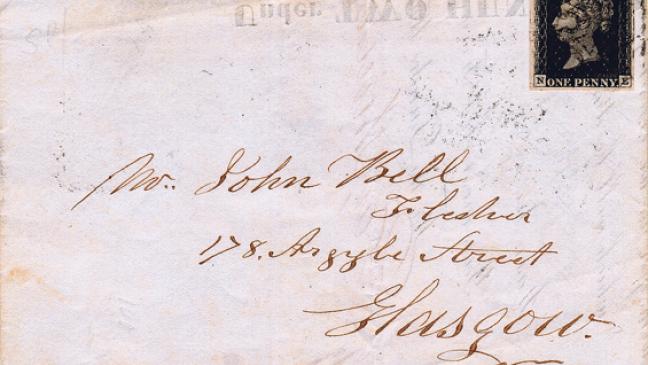 Under TWO HUN
N ONE PENNY. E
Mr. John Bell
Flesher
178. Argyle Street
Glasgow.